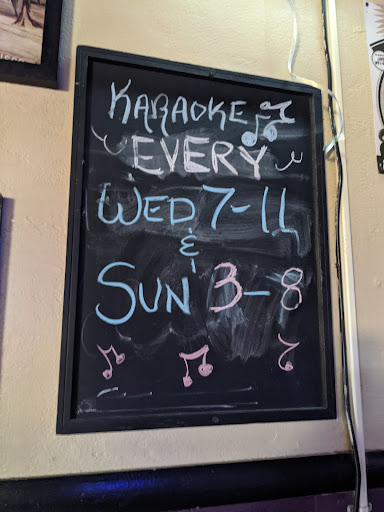 KARAOKE
EVERY
WED 7-11
&
SUN 3-8